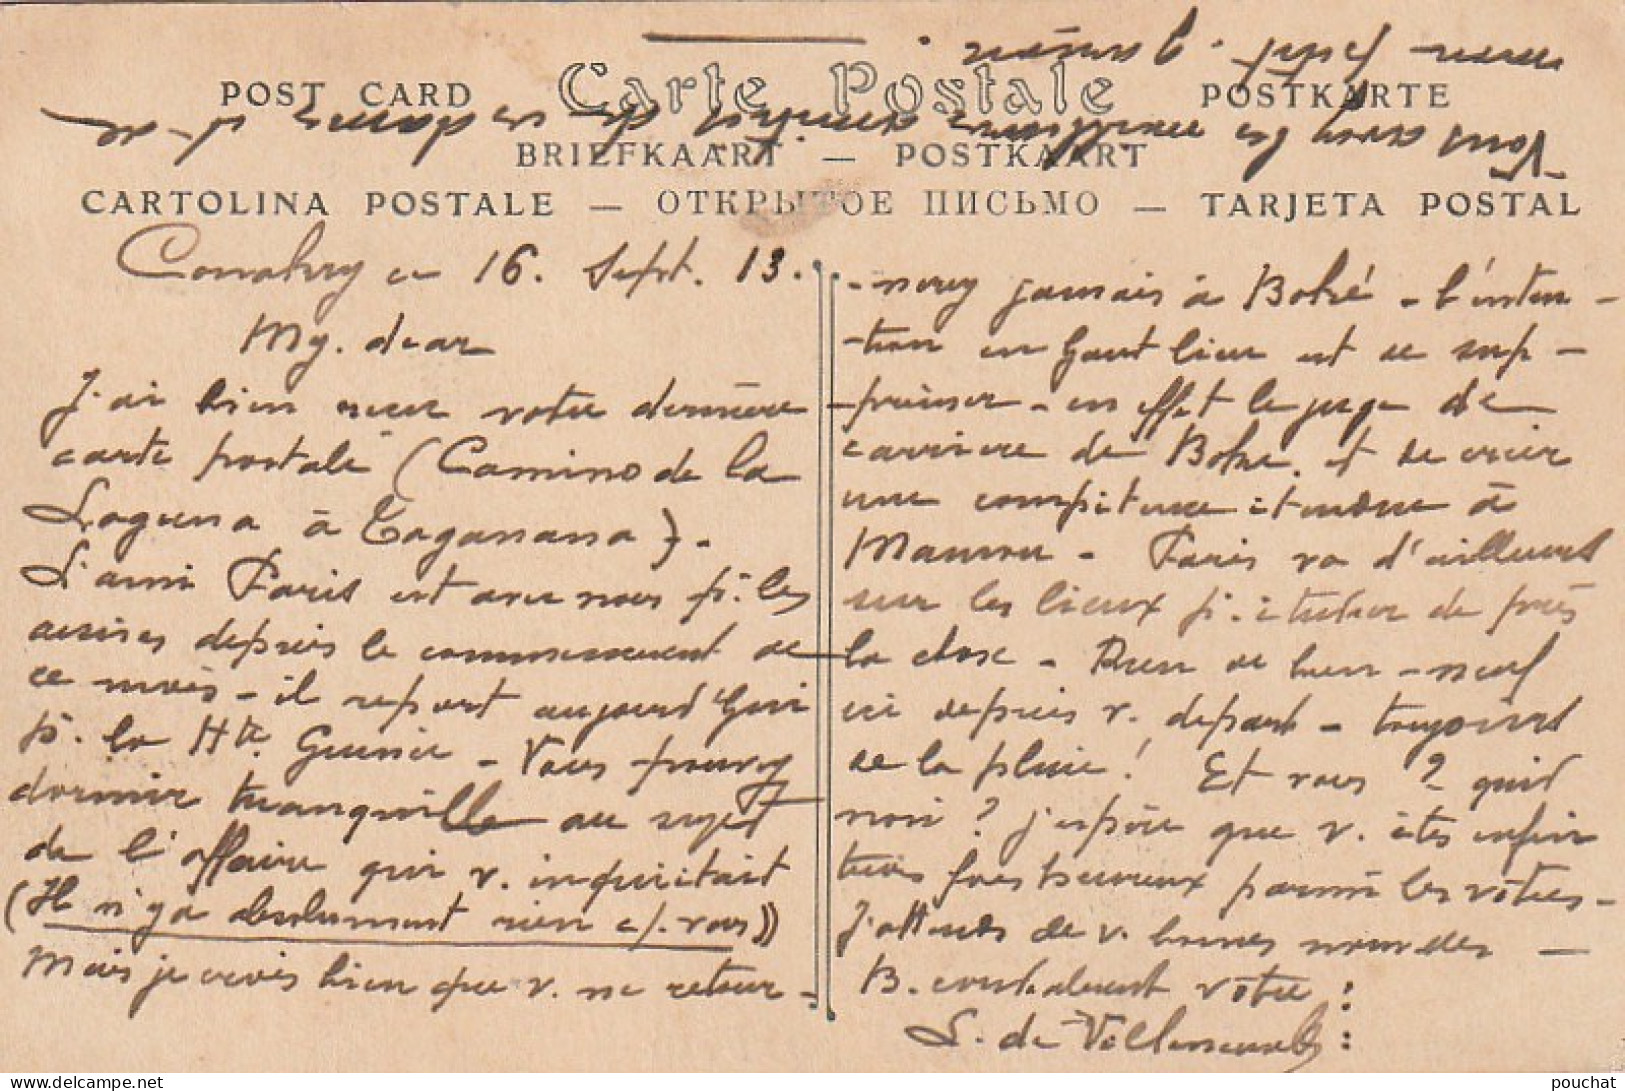 POST CARD Carte Postale POSTKARTE
BRIEFKAART — POSTKAART
CARTOLINA POSTALE — ОТКРЫТОЕ ПИСЬМО — TARJETA POSTAL
Conakry ce 16. Sept. 13.
My. dear
J'ai bien reçu votre dernière
carte postale (Camino de la
Laguna à Taganana).
L'ami Paris est avec nous p. les
assises depuis le commencement de
ce mois - il repart aujourd'hui
p. la Hte Guinée - Vous pouvez
dormir tranquille au sujet
de l'affaire qui v. inquiétait
(Il n'y a absolument rien c/. vous))
Mais je crois bien que v. ne retour-
-nerez jamais à Boké - l'inten-
-tion en haut lieu est de sup-
-primer - en effet le juge de
carrière de Boké. et de créer
une compétence étendue à
Mamou - Paris va d'ailleurs
sur les lieux p. étudier de près
la chose - Rien de bien - neuf
ici depuis v. départ - toujours
de la pluie! Et vous ? quid
novi ? J'espère que v. êtes enfin
très heureux parmi les vôtres -
J'attends de v. bonnes nouvelles -
B. cordialement votre :
L. de Villeneuve :
Vous avez les meilleures amitiés de